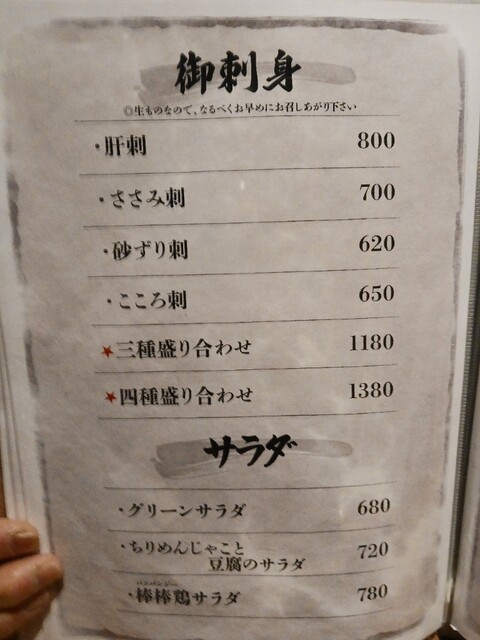 御刺身
◎生ものなので、なるべくお早めにお召しあがり下さい
・肝刺 800
・ささみ刺 700
・砂ずり刺 620
・こころ刺 650
★三種盛り合わせ 1180
★四種盛り合わせ 1380
サラダ
・グリーンサラダ 680
・ちりめんじゃこと
豆腐のサラダ 720
バンバンジー
・棒棒鶏サラダ 780